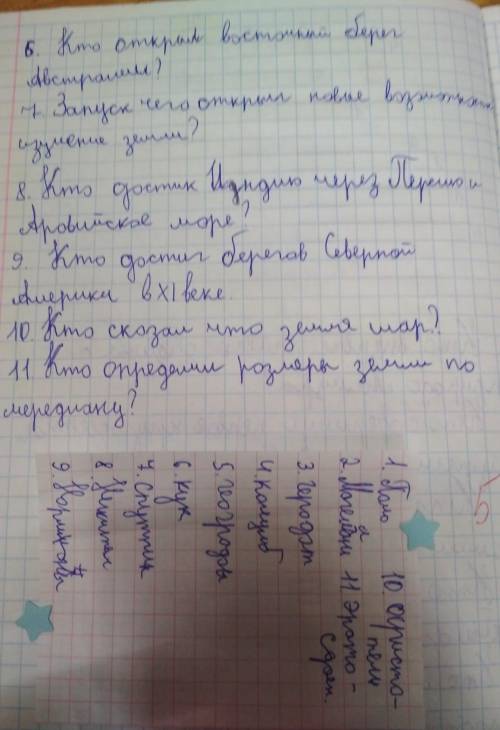 6. Кто открыл восточный берег
Австралии?
7. Запуск чего открыл новые возможност
изучение земли?
8. Кто достик Индию через Персию и
Аровийское море?
9. Кто достиг берегов Северной
Америки в XI веке.
10. Кто сказал что земля шар?
11. Кто определил розмеры земли по
мередиану?
1. Поло
2. Магелан
3. геродот
4. колумб
5. геогродов
6. кук
7. спутник
8. Никитин
9. Норман-ны
10. аристо-
тель
11. Эрато-
сфен.
5